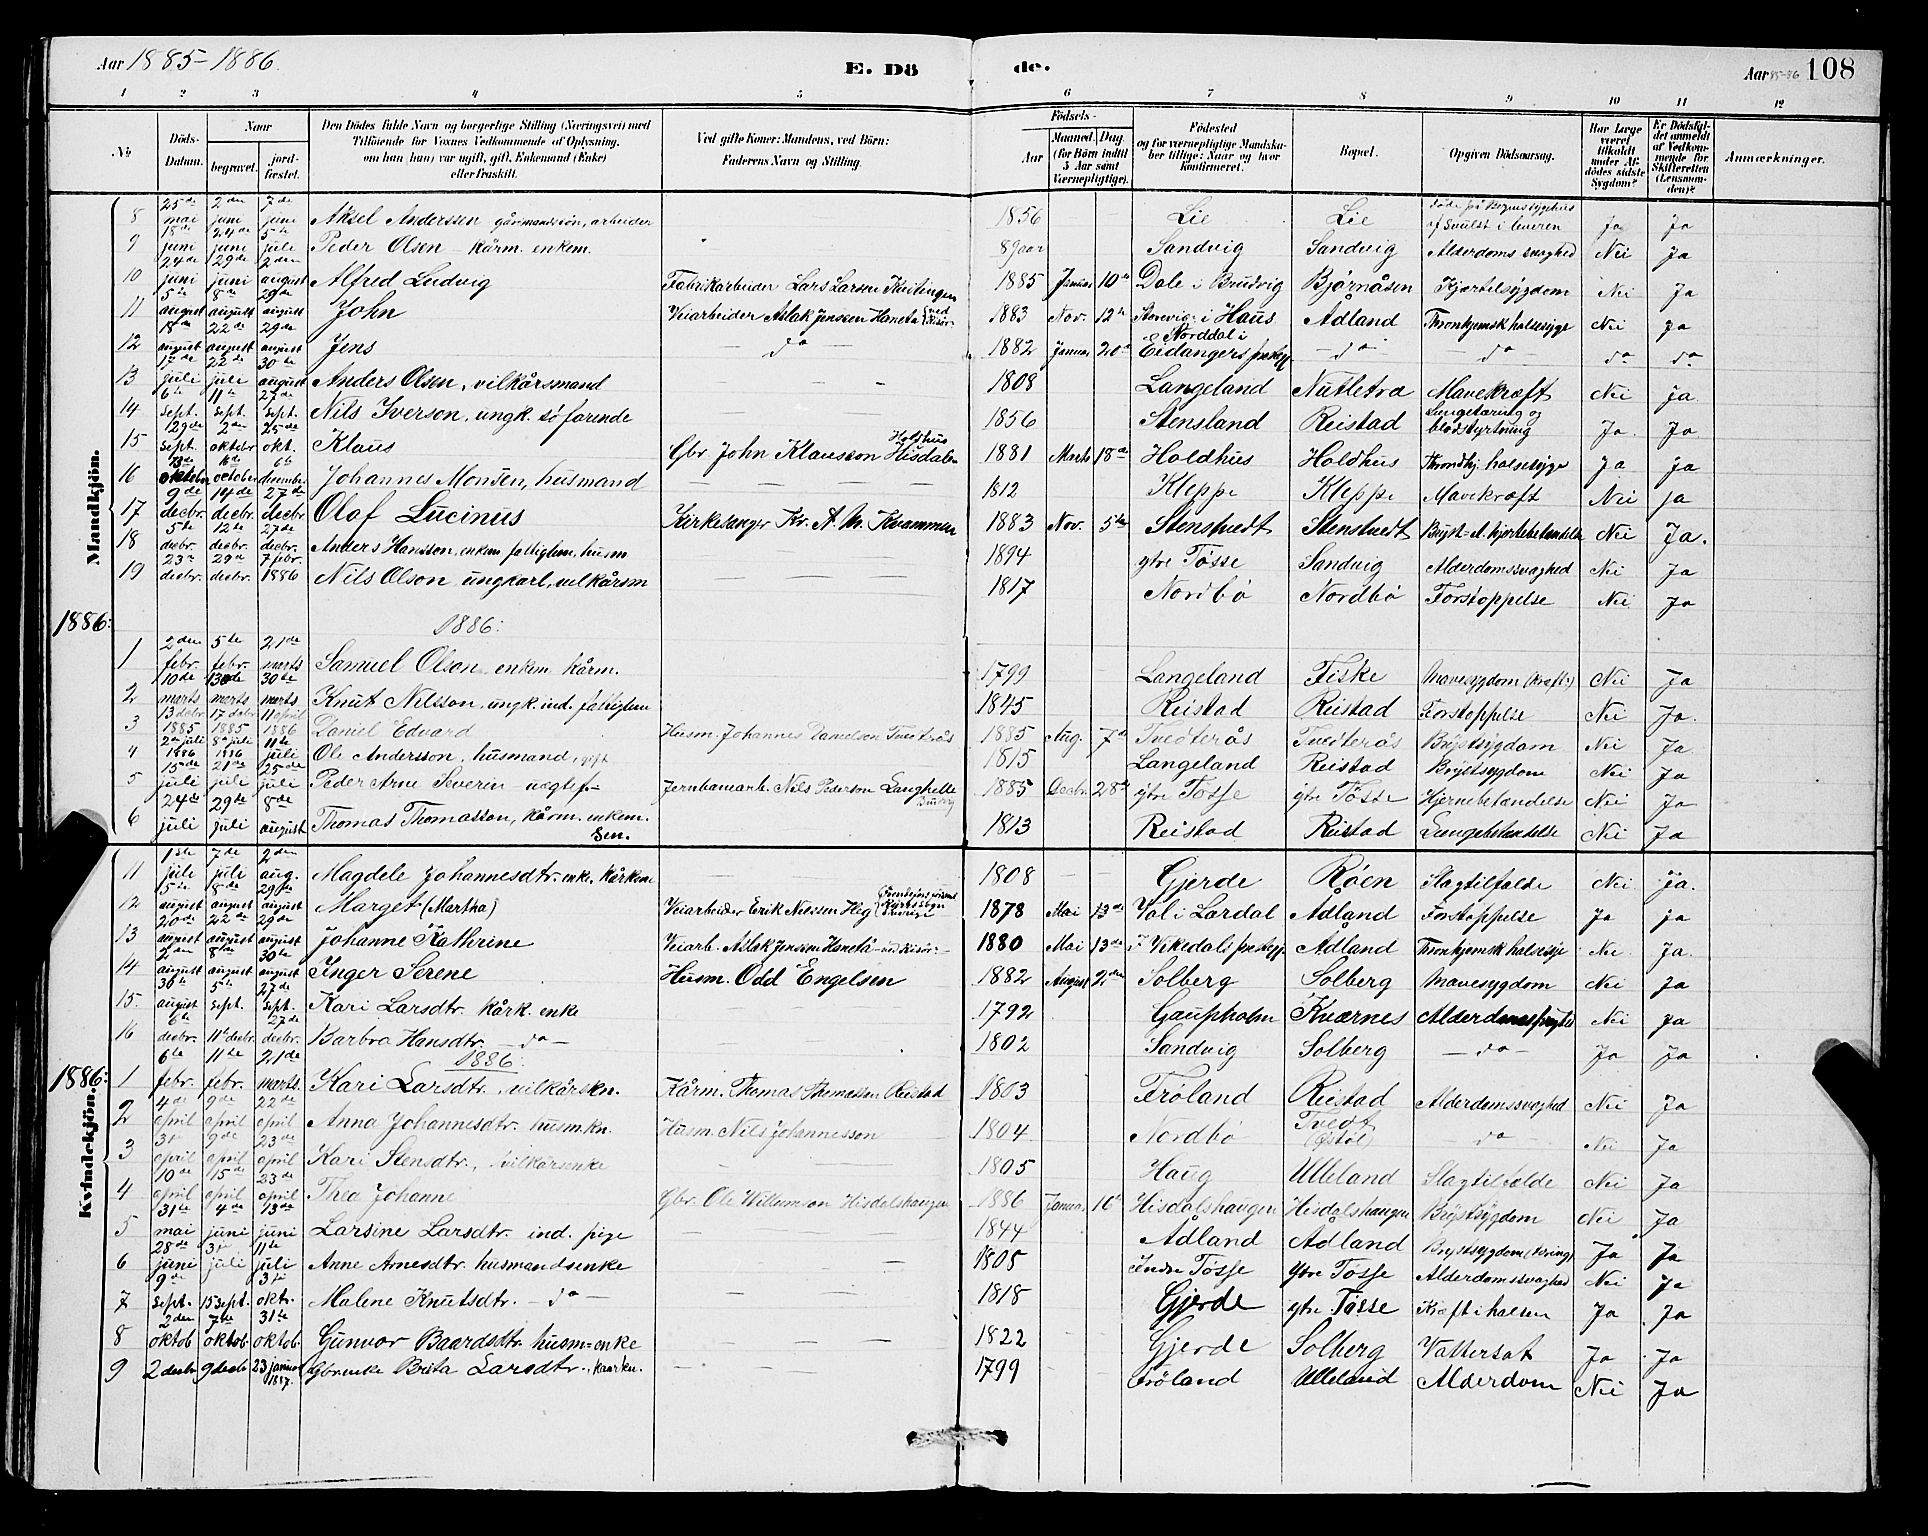 Aar 1885-1886.
E. Dö de.
Aar 85-86 108
1 2 3 4 5 6 7 8 9 10 11 12
No
Döds-Datum.
Naar begravet. jordfæstet.
Den Dödes fulde Navn og borgerlige Stilling (Næringsvei) med Tilföiende for Voxnes Vedkommende af Oplysning, om han (hun) var ugift, gift, Enkemand (Enke) eller fraskilt.
Ved gifte Koner: Mandens, ved Börn: Faderens Navn og Stilling.
Födsels-
Aar Maaned. Dag (for Börn indtil 5 Aar samt Værnepligtige).
Födested og for værnepligtige Mandskaber tillige: Naar og hvor konfirmeret.
Bopæl.
Opgiven Dödsaarsag.
Har Læge været tilkaldt under Afdödes sidste Sygdom?
Er Dödsfaldet anmeldt af Vedkommende for Skifteretten (Lensmanden)?
Anmærkninger.
Mandkjön.
8 25de mai 2den juni 7de juni Aksel Anderssen gårmandssön, arbeider 1856 Lie Lie af Svulst i leveren Ja Ja
9 18de juni 24de juni 5te juli Peder Olsen - kårm. enkem. 89 aar Sandvig Sandvig Alderdoms svaghed Nei Ja
10 24de juni 29de juni 2den august Alfred Ludvig Fabrikarbeider Lars Larsen 1885 Januar 10de Dale i Brudvig Bjørnåsen Kjertelsygdom Nei Ja
11 5te august 8de august 29de august John Veiarbeider Aslak Jensen 1883 Nov. 12te i Haus Ådland Thronhjemsk halssyge Nei Ja
12 18de august 22de august 29de august Jens do 1882 Januar 20de Norddal i Eidangers præstgj. do do do do
13 17de juli 22de juli 30te august Anders Olsen, vilkårsmand 1808 Langeland Nutletræ Mavekræft Nei ja
14 6te sept. 11te sept. 27de sept. Nils Iverson, ungk. söfarende 1856 Stensland Reistad Lungetæring og blodstyrtning Ja Ja
15 29de sept. 2den oktober 25de okt. Klaus Gbr John Klausson Holdhus Hisdalen 1881 Marts 18de Holdhus Holdhus Throndhj. halssyge Ja ja
16 13de oktober 16de october 6te december Johannes Monsen, husmand 1812 Kleppe Kleppe Mavekræft Nei ja
17 9de decbr. 14de decbr. 27de decbr. Olaf Lucinus Kirkesanger Kr. A. M. Kvammen 1883 Nov. 5te Stenstvedt Stenstvedt Nei Ja.
18 5te decbr. 12te decbr. 27de decbr. Anders Hansson, enkem. fattiglem, husm 1894 ytre Tøsse Sandvig Alderdomssvaghed Nei Ja
19 23de decbr. 29de decbr. 7 febr. 1886 Nils Olson ungkarl, vilkårsm 1817 Nordbö Nordbö Forstoppelse Nei Ja
1886: 1886:
1 2den febr. 5te febr. 21de marts Samuel Olson, enkem. kårm. 1799 Langeland Fiske Mavesygdom (kræft) Nei Ja
2 10de marts 13de marts 30te marts Knut Nilsson, ungk. ind. fattiglem 1845 Reistad Reistad Forstoppelse Nei Ja.
3 13 decbr 1885 17 decbr 1885 11 april 1886 Daniel Edvard Husm. Johannes Danielson Tveiterås 1885 Aug. 7de Tveiterås Tveiterås Brystsygdom Nei Ja
4 2den juli 1886 8de juli 1886 11te juli Ole Andersson, husmand, gift 1815 Langeland Reistad Brystsygdom Nei Ja
5 15de juli 21de juli 25de juli Peder Arne Severin uegtef- Jernbanearb. Nils Pederson Langhelle 1885 Decbr. 28de ytre Tösse ytre Tösse Hjernebetændelse Nei Ja
6 24de juli 29de juli 8de august Thomas Thomasson, kårm. enkem. Sen. 1813 Reistad Reistad Lungebetændelse Nei Ja
Kvindekjön.
11 1ste juli 7de juli 2den aug. Magdele Johannesdtr. enke. kårkone 1808 Gjerde Røen Slagtilfælde Nei Ja.
12 5te august 8de august 29de august Marget (Martha) Veiarbeider Erik Nilssen Heg 1878 Mai 13de Vol i Lærdal Ådland Forstoppelse Ja ja
13 20de august 22de august 29de august Johanne Kathrine Veiarb. Aslak Jensen 1880 Mai 13de i Vikedals præstgj. Ådland Thronhjemsk halssyge Nei Ja.
14 2den august 8de august 30te august Inger Serene Husm. Odd Engelsen 1882 August 2den Solberg Solberg Mavesygdom Nei Ja
15 30te august 5te sept. 27de sept. Kari Larsdtr. kårk. enke 1792 Gaupholm Kvernes Nei Ja
16 6te decbr. 11te decbr. 27de decbr. Barbra Hansdtr. -do- 1802 Sandvig Solberg -do- Ja Ja
1886: 1886:
1 6te febr. 11te febr. 21de marts. Kari Larsdtr. vilkårskn. Kårm. Thomas Thomassen Reistad 1803 Fröland Reistad Alderdomssvaghed Nei Ja
2 4de april 9de april 22de april Anna Johannesdtr. husm.kn. Husm. Nils Johannesson 1804 Nordbö Tvedt (Østöl) do Nei Ja
3 3die april 9de april 23de april Kari Stensdtr., vilkårsenke 1805 Haug Ulleland Slagtilfælde Nei Ja
4 10de april 15de april 23de april Thea Johanne Gbr. Ole Willumson Hisdalshaugen 1886 Januar 16de Hisdalshaugen Hisdalshaugen Brystsygdom Nei Ja
5 31te mai 4de juni 13de juni Larsine Larsdtr. ind. pige 1844 Ådland Ådland Brystsygdom Ja Ja
6 28de juni 3die juli 11te juli Anne Arnesdtr. husmandsenke 1805 Indre Tösse Ytre Tösse Alderdomssvaghed Nei Ja
7 9de sept. 15 sept. 3die oktr. Malene Knutsdtr. -do- 1818 Gjerde ytre Tösse Kræft i halsen Ja Ja
8 2den oktob 7de oktob 31te oktob. Gunvor Baardsdtr. husm-enke 1822 Gjerde Solberg Vattersot Ja Ja
9 2 decbr 9 decbr 23 januar 1887. Gbrenke Brita Larsdtr. kaarkn. 1799 Fröland Ulleland Alderdom Nei Ja